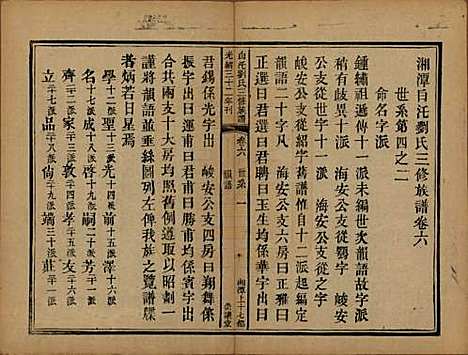 湘潭白汑劉氏三修族譜卷六
世系第四之二
命名字派
鍾繡祖遜傳十一派未編世次韻語故字派
稍有歧異十一派嶷安公支從勞字 峻安
公支從世字十一派峻嶷安公支從之字
峻安公支從紹字舊譜慎自十二派起編定
韻語二十字凡 嶷安公支六房曰正雅曰
正選曰君選曰君聘曰玉生均係華宇出曰
白汑劉氏三修族譜 卷六 世系 一
光緒三十二年刊 韻語 湘潭上十七都 崇議堂
君錫係光宇出 峻安公支四房曰翔舞係
振宇出曰君衡曰君佐曰君輔均係賓宇出
共兩支十大房均照舊例合遵取以昭劃一
謹將韻語並垂絲圖列後俾我族之覽譜牒
者炳若日星焉
學十二派 高十三派 明十四派 前十五派 澤十六派
名十七派 成十八派 啓十九派 嗣二十派 芳二十一派
齊二十二派 家二十三派 敦二十四派 孝二十五派 友二十六派
立二十七派 品二十八派 尙二十九派 端三十派 莊三十一派